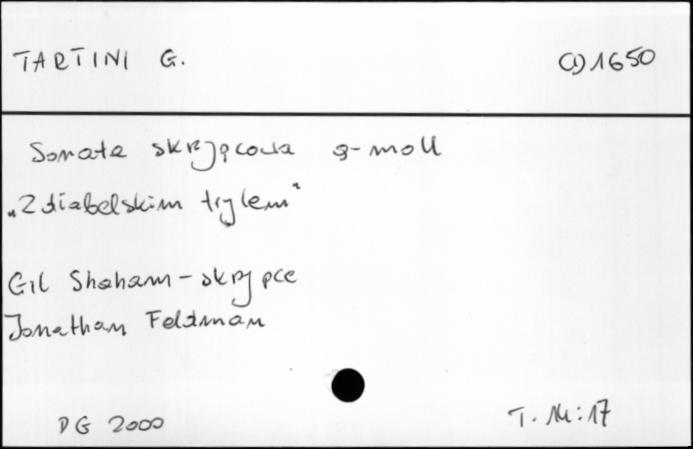 TARTINI G. CD 1650
Sonata skrzypcowa g-moll
„Z diabelskim trylem"
Gil Shaham - skrzypce
Jonathan Feldman
DG 2000 T. 14:17